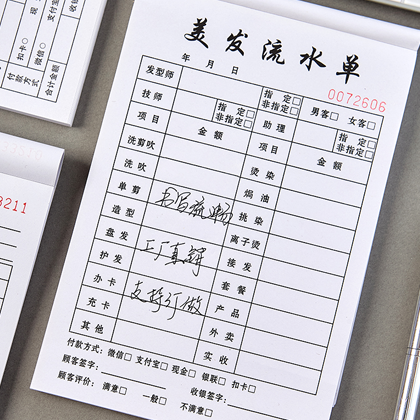 美发流水单
年 月 日
0072606
发型师 指 定□ 非指定□ 男客□ 女客□
技师 指 定□ 非指定□ 助理 指 定□ 非指定□
项目 金额 项目 金额
洗剪吹 烫染
洗吹 焗油
单剪 书写流畅 挑染
造型 离子烫
盘发 工厂直销 接发
护发 套餐
办卡 支持订做 产品
充卡 外卖
其他 实收
付款方式：微信□ 支付宝□ 现金□ 银联□ 扣卡□
顾客签字： 收银签字：
顾客评价： 满意□ 一般□ 不满意□
现
支付宝
收银
扣卡□
微信□
付款方式
合计金额
8211